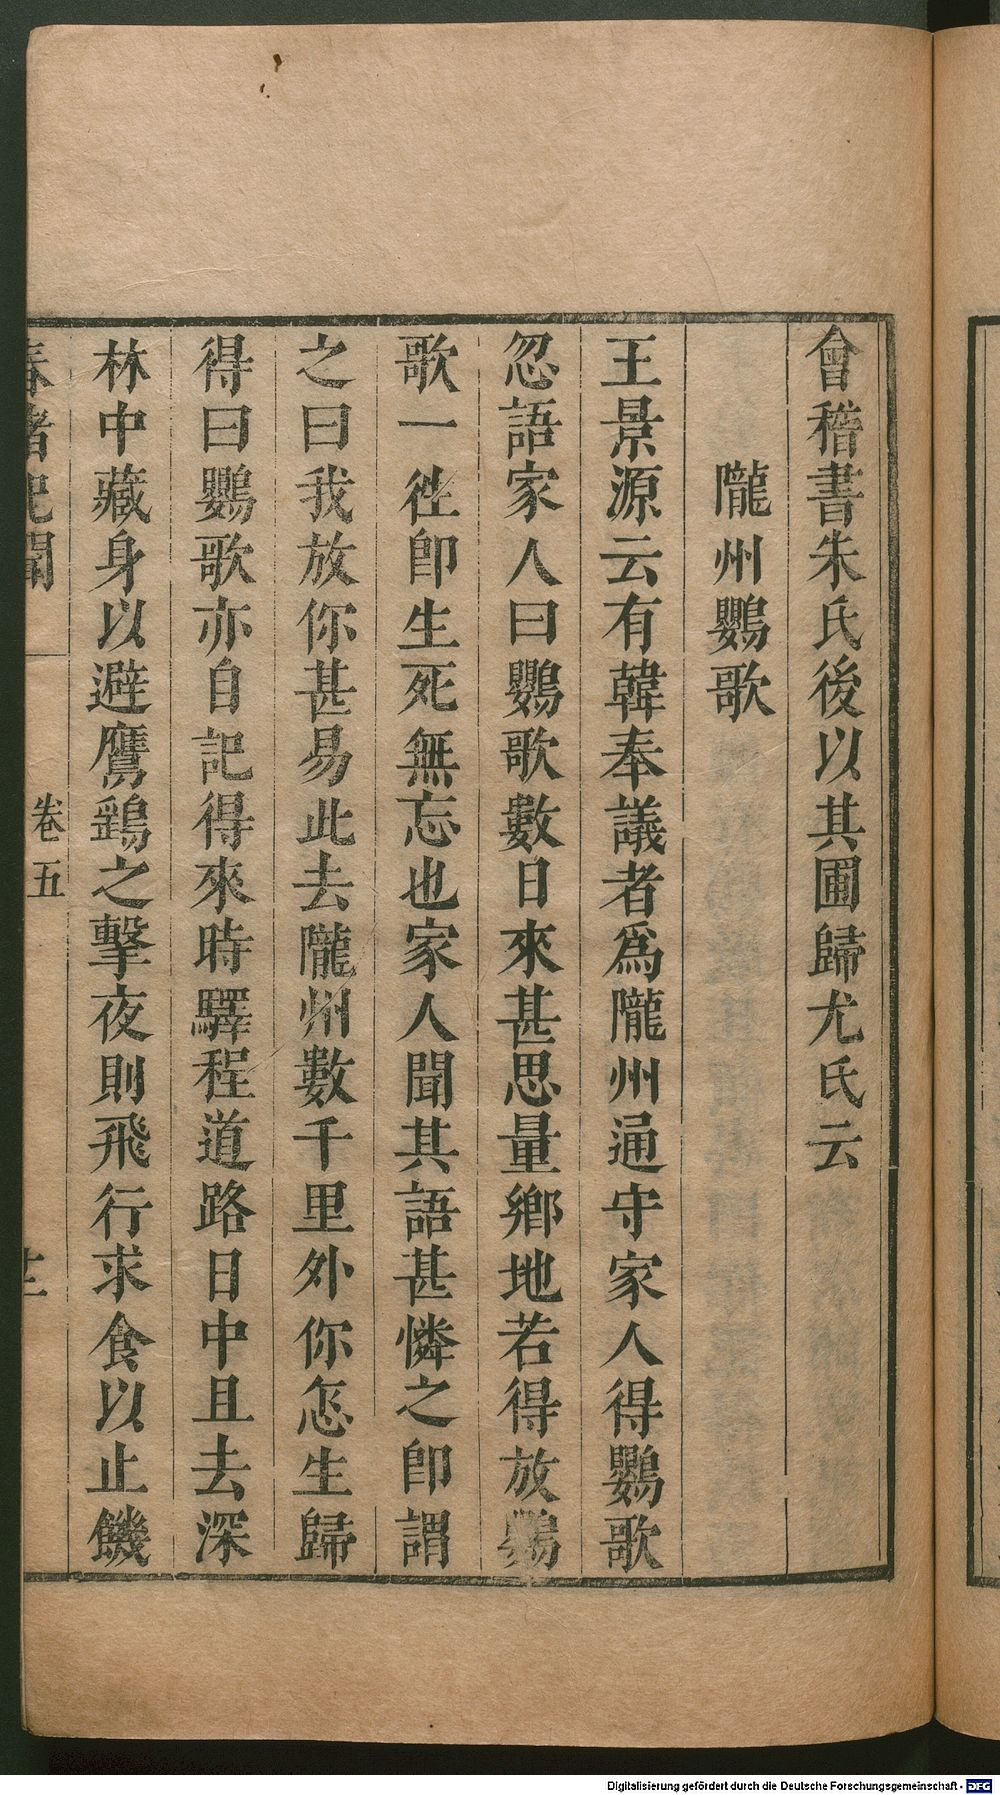 會稽書朱氏後以其圃歸尤氏云
隴州鸚歌
王景源云有韓奉議者爲隴州通守家人得鸚歌
忽語家人曰鸚歌數日來甚思量鄉地若得放鸚
歌一徃卽生死無忘也家人聞其語甚憐之卽謂
之曰我放你甚易此去隴州數千里外你怎生歸
得曰鸚歌亦自記得來時驛程道路日中且去深
林中藏身以避鷹鷂之擊夜則飛行求食以止饑
春渚紀聞
卷五
Digitalisierung gefördert durch die Deutsche Forschungsgemeinschaft - DFG